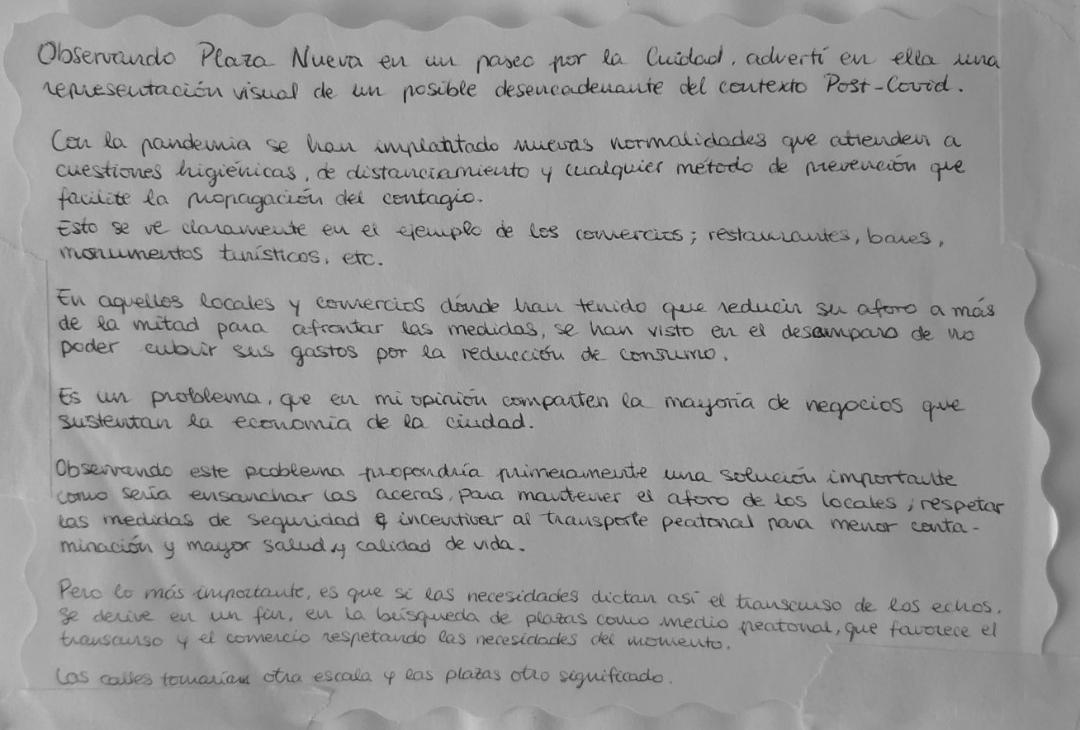 Observando Plaza Nueva en un paseo por la Cuidad, advertí en ella una
representación visual de un posible desencadenante del contexto Post-Covid.
Con la pandemia se han implahtado nuevas normalidades que atienden a
cuestiones higiénicas, de distanciamiento y cualquier método de prevención que
facilite la propagación del contagio.
Esto se ve claramente en el ejemplo de los comercios; restaurantes, bares,
monumentos turísticos, etc.
En aquellos locales y comercios dónde han tenido que reducir su aforo a más
de la mitad para afrontar las medidas, se han visto en el desamparo de no
poder cubrir sus gastos por la reducción de consumo.
Es un problema, que en mi opinión comparten la mayoría de negocios que
sustentan la economía de la ciudad.
Observando este problema propondría primeramente una solución importante
como sería ensanchar las aceras, para mantener el aforo de los locales; respetar
las medidas de seguridad e incentivar al transporte peatonal para menor conta-
minación y mayor salud y calidad de vida.
Pero lo más importante, es que si las necesidades dictan así el transcurso de los echos.
Se derive en un fin, en la búsqueda de plazas como medio peatonal, que favorece el
transcurso y el comercio respetando las necesidades del momento.
Las calles tomarían otra escala y las plazas otro significado.